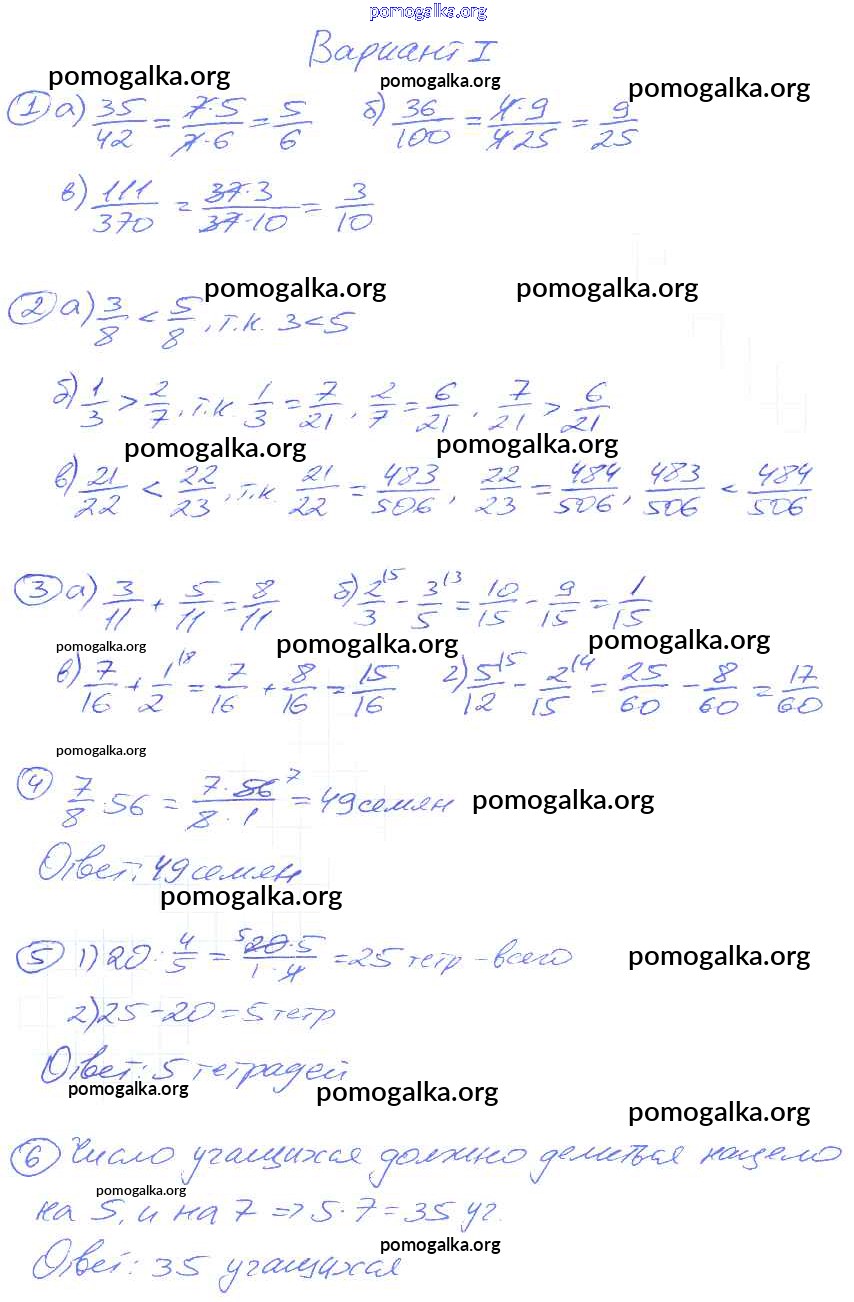 pomogalka.org
Вариант I
pomogalka.org pomogalka.org pomogalka.org
1 а) 35/42 = 7·5/7·6 = 5/6 б) 36/100 = 4·9/4·25 = 9/25
в) 111/370 = 37·3/37·10 = 3/10
pomogalka.org pomogalka.org
2 а) 3/8 < 5/8, т.к. 3<5
б) 1/3 > 2/7, т.к. 1/3 = 7/21, 2/7 = 6/21, 7/21 > 6/21
pomogalka.org pomogalka.org
в) 21/22 < 22/23, т.к. 21/22 = 483/506, 22/23 = 484/506, 483/506 < 484/506
3 а) 3/11 + 5/11 = 8/11 б) 2/3 ^(5 - 3/5 ^(3 = 10/15 - 9/15 = 1/15
pomogalka.org pomogalka.org pomogalka.org
в) 7/16 + 1/2 ^(8 = 7/16 + 8/16 = 15/16 г) 5/12 ^(5 - 2/15 ^(4 = 25/60 - 8/60 = 17/60
pomogalka.org
4 7/8 · 56 = 7·56 ^7/8·1 = 49 семян pomogalka.org
Ответ: 49 семян
pomogalka.org
5 1) 20 : 4/5 = ^5 20·5/1·4 = 25 тетр – всего pomogalka.org
2) 25 – 20 = 5 тетр
Ответ: 5 тетрадей
pomogalka.org pomogalka.org pomogalka.org
6 Число учащихся должно делиться нацело
pomogalka.org
на 5, и на 7 => 5·7 = 35 уч.
pomogalka.org
Ответ: 35 учащихся